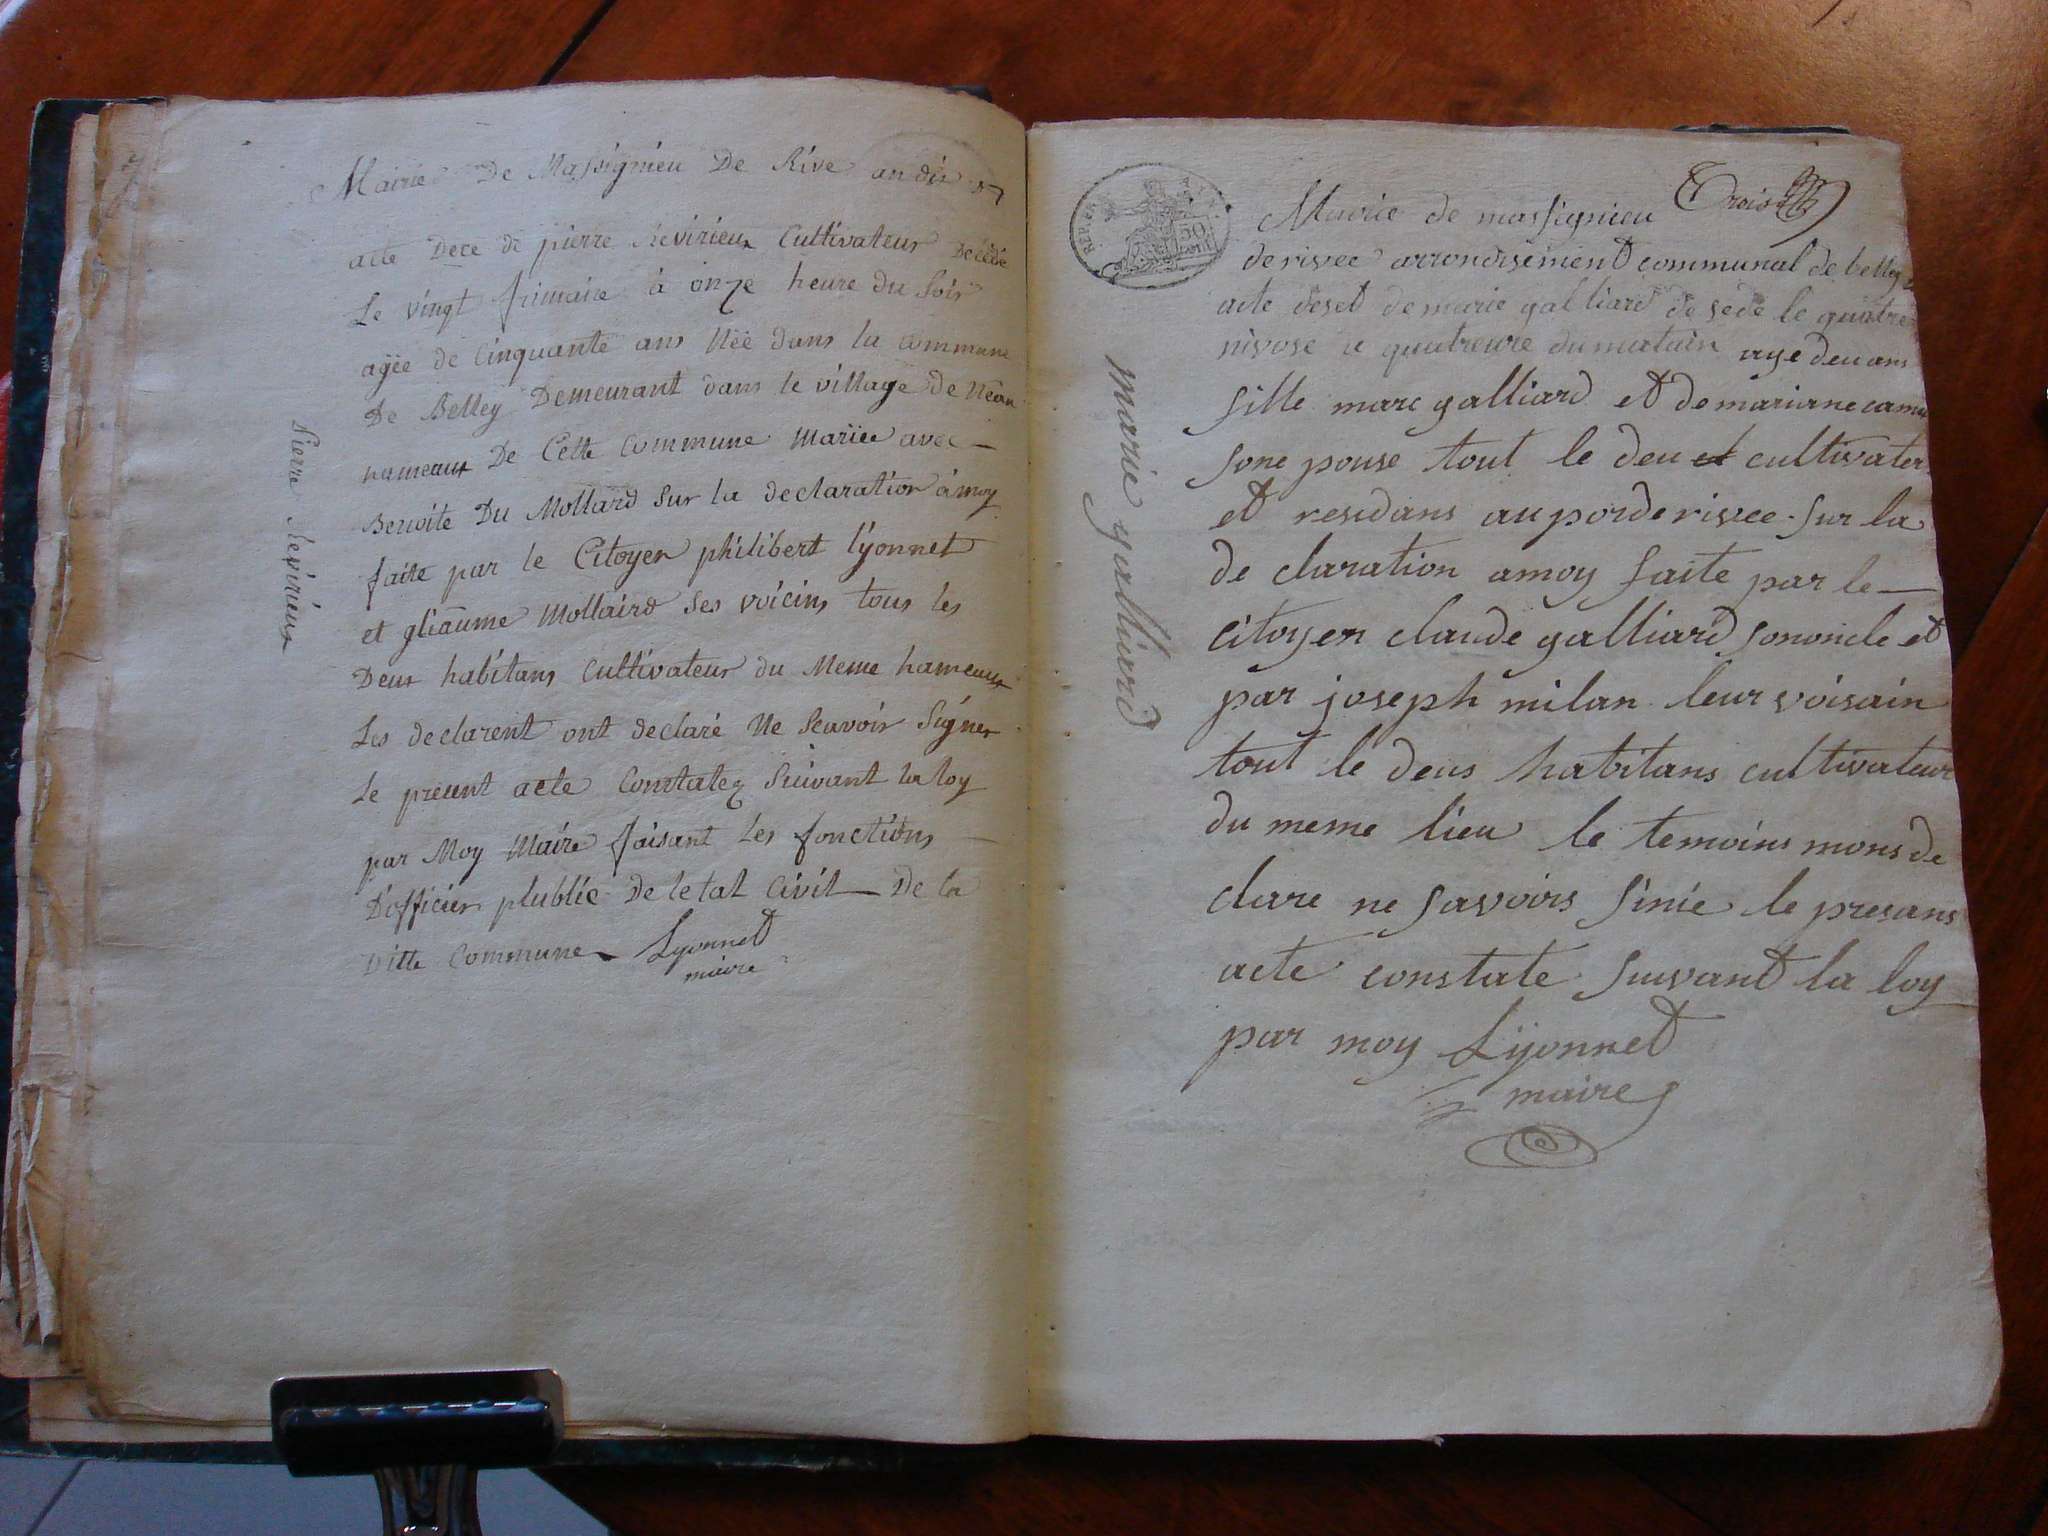 Mairie De Massignieu De Rive an dix
acte Dece de pierre Revirieux Cultivateur Décédé
Le vingt frimaire à onze heure du Soir
agée de Cinquante ans Née dans la Commune
De Belley Demeurant dans le village de
hameaux De Cette Commune Mariée avec
Benoite Du Mollard Sur la declaration à moy
faite par le Citoyen philibert lyonnet
et gliaume Mollaird Ses voicins tous les
Deux habitans Cultivateur du Meme hameaux
Les declarent ont declaré Ne Scavoir Signer
Le present acte Constatez Suivant la loy
par Moy Maire faisant Les fonctions
D'officier plublic De letat Civil De la
ditte Commune Lyonnet
maire
Pierre Revirieux
Trois
Mairie de massignieu
de rivee arrondisement communal de belley
acte deset de marie galliard de sede le quatre
nivose a quatreure du matain aye deu ans
fille marc galliard et de mariane
sone pouse tout le deu et cultivateur
et residans au por de rivee sur la
de claration a moy faite par le
citoyen claude galliard sononcle et
par joseph milan leur voisain
tout le deus habitans cultivateur
du meme lieu le temoins mons de
clare ne savoirs sinie le presans
acte constate suivant la loy
par moy Lyonnet
maire
marie galliard
50
cent